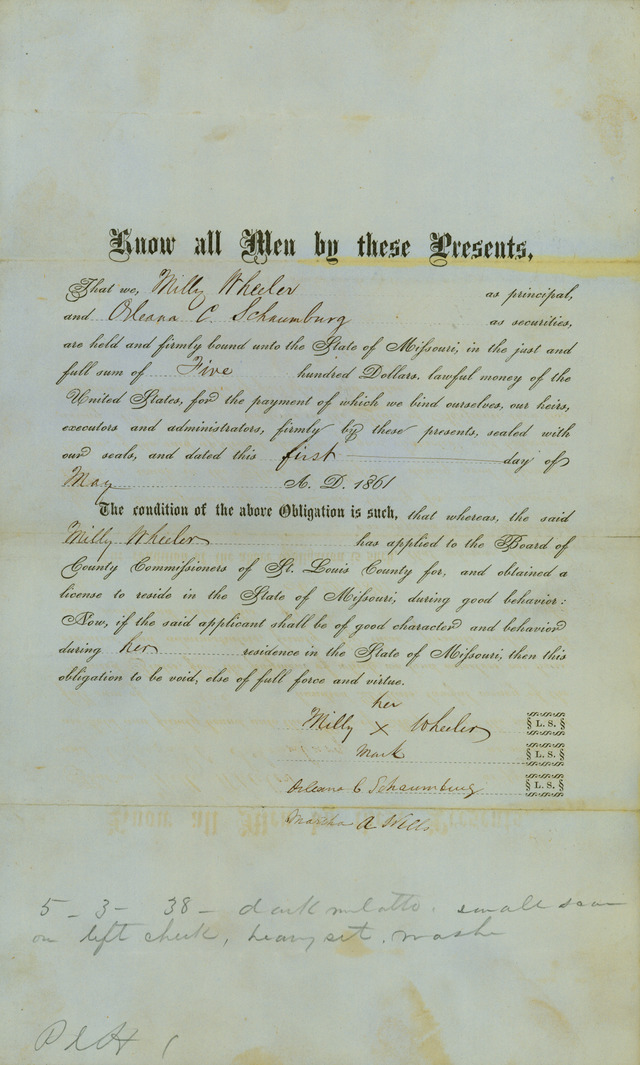 Know all Men by these Presents,
That we, Milly Wheeler as principal,
and Orleana C. Schaumburg as securities,
are held and firmly bound unto the State of Missouri, in the just and
full sum of Five hundred Dollars, lawful money of the
United States, for the payment of which we bind ourselves, our heirs,
executors and administrators, firmly by these presents, sealed with
our seals, and dated this first day of
May A. D. 1861
The condition of the above Obligation is such, that whereas, the said
Milly Wheeler has applied to the Board of
County Commissioners of St. Louis County for, and obtained a
license to reside in the State of Missouri, during good behavior:
Now, if the said applicant shall be of good character and behavior
during her residence in the State of Missouri, then this
obligation to be void, else of full force and virtue.
her
Milly X Wheeler L. S.
mark L. S.
Orleana C Schaumburg L. S.
Martha A Wells
5 - 3 - 38 - dark mulatto. small scar
on left cheek, heavy set. washer